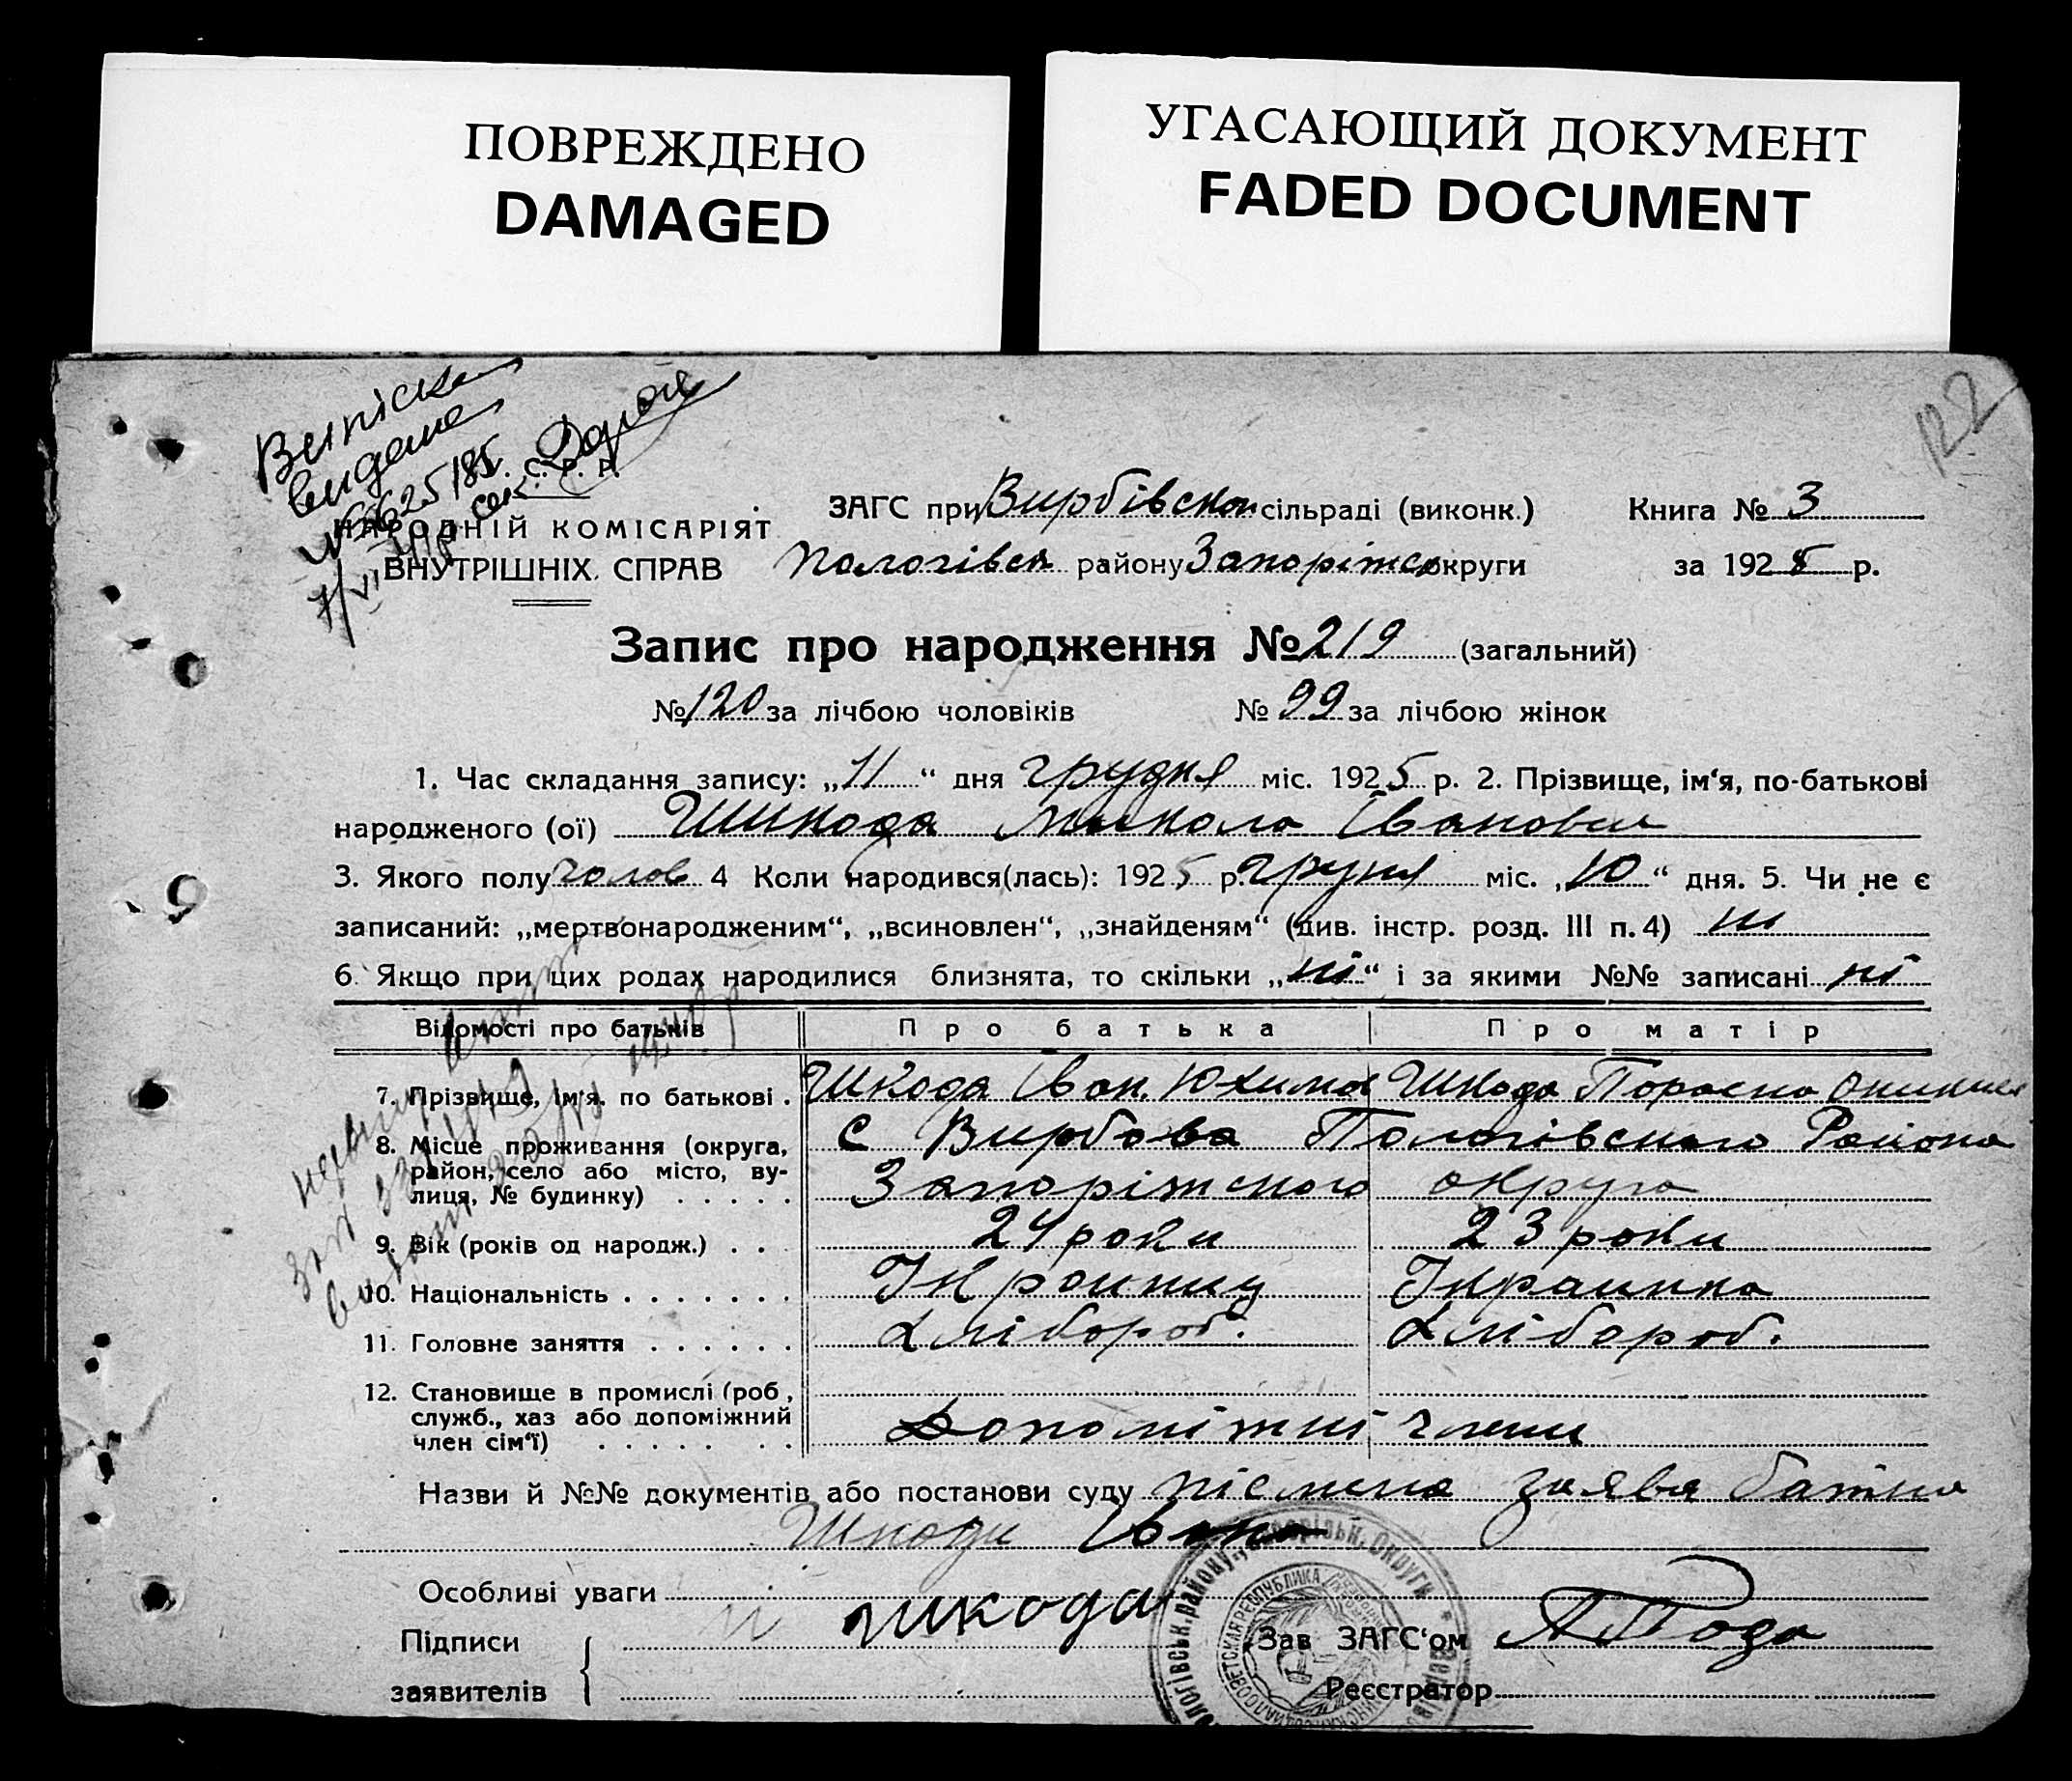 ПОВРЕЖДЕНО
DAMAGED
УГАСАЮЩИЙ ДОКУМЕНТ
FADED DOCUMENT
122
Випіска
видана
С. Р. Р.
НАРОДНІЙ КОМІСАРІЯТ
ВНУТРІШНІХ СПРАВ
ЗАГС при Вирбівской сільраді (виконк.) Книга № 3
Пологівск району Запоріжск округи за 1925 р.
Запис про народження № 219 (загальний)
№ 120 за лічбою чоловіків № 99 за лічбою жінок
1. Час складання запису: „11“ дня грудня міс. 1925 р. 2. Прізвище, ім‘я, по-батькові
народженого (ої) Шкода Микола Іванович
3. Якого полу чолов 4 Коли народився(лась): 1925 р. грудня міс. „10“ дня. 5. Чи не є
записаний: „мертвонародженим“, „всиновлен“, „знайденям“ (див. інстр. розд. III п. 4) ні
6. Якщо при цих родах народилися близнята, то скільки „ні“ і за якими №№ записані ні
Відомості про батьків Про батька Про матір
7. Прізвище, ім‘я. по батькові . Шкода Іван. Юхимов Шкода
8. Місце проживання (округа, с Вирбова Пологівского Района
район, село або місто, ву-
лиця, № будинку) . . . . . Запоріжского округа
9. Вік (років од народж.) . . . 24 роки 23 роки
10. Національність . . . . . . . Украинец Украинка
11. Головне заняття . . . . . . Хлібороб. Хлібороб.
12. Становище в промислі (роб,
служб., хаз або допоміжний
член сім‘ї) . . . . . . . Допоміжні члени
Назви й №№ документів або постанови суду пісмена заява батька
Шкоди Івана
Особливі уваги
Підписи шкода Зав ЗАГС‘ом
заявителів Реєстратор